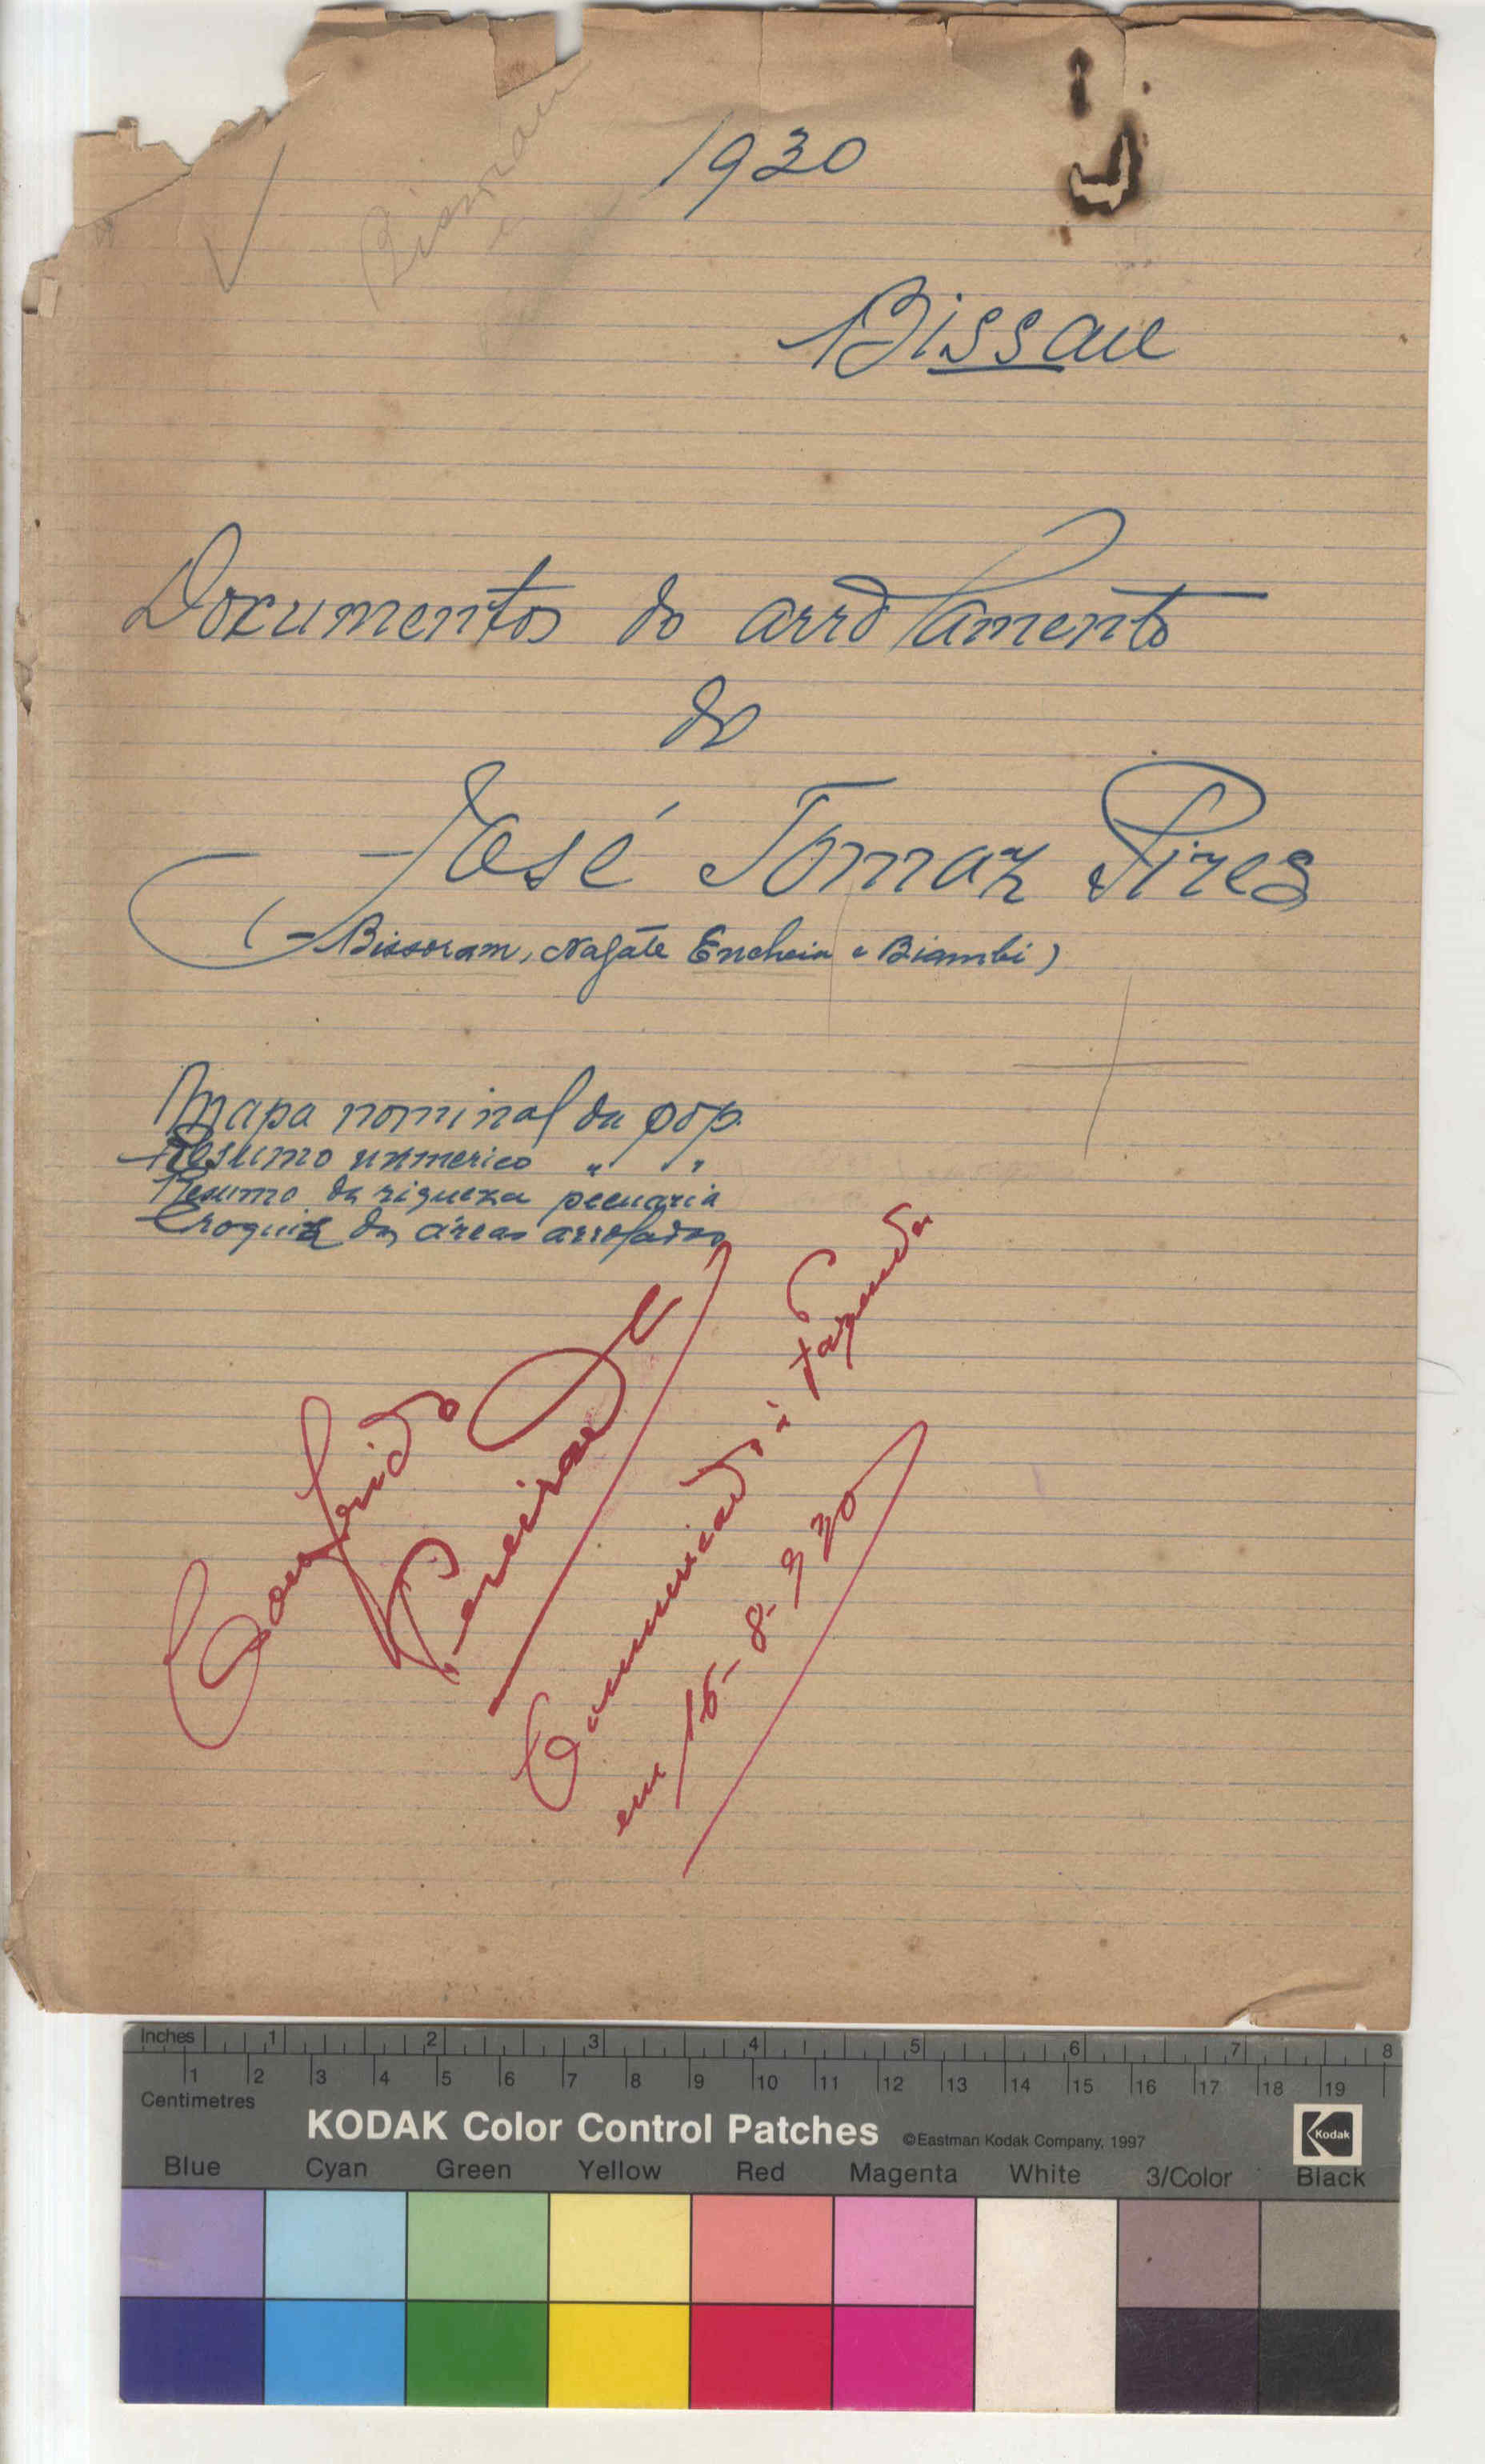 1930
Bissoram
e
Bissau
Documentos do arrolamento
do
José Tomaz Pires
(Bissoram, Nagáte Encheia e Biambi)
Mapa nominal da pop.
Resumo numerico " "
Resumo da riqueza pecuaria
Croquiz das áreas arroladas
Conferido
Pereira
Comunicado à Fazenda
em 15-8-930
Inches 1 2 3 4 5 6 7 8
1 2 3 4 5 6 7 8 9 10 11 12 13 14 15 16 17 18 19
Centimetres
KODAK Color Control Patches ©Eastman Kodak Company, 1997 Kodak
Blue Cyan Green Yellow Red Magenta White 3/Color Black